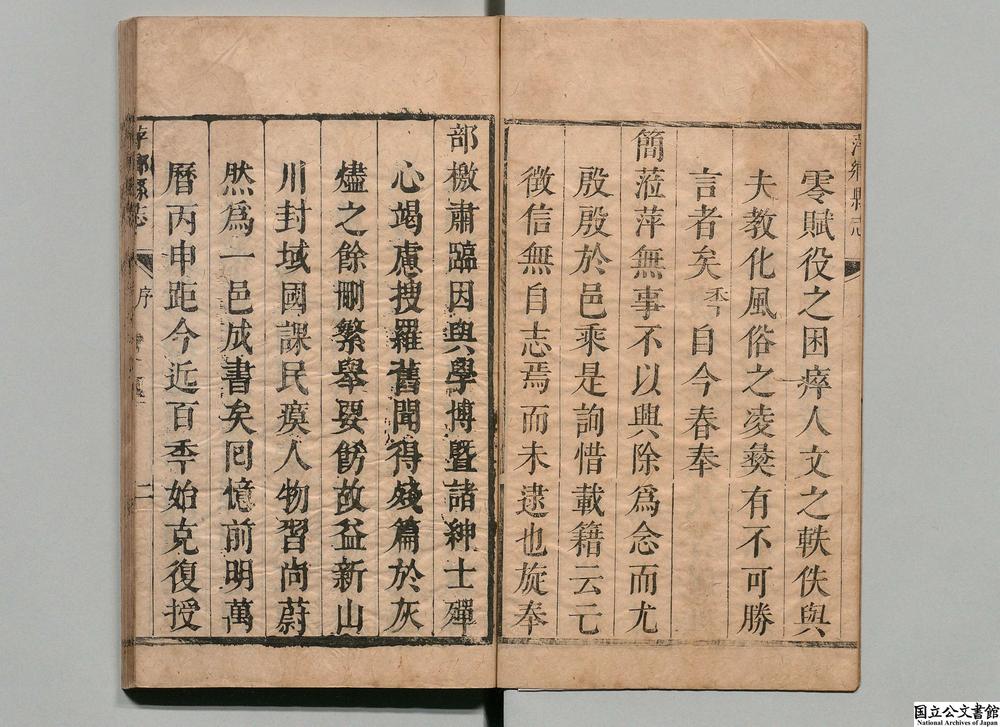 萍鄉縣志
零賦役之困瘁人文之軼佚與
夫教化風俗之凌彝有不可勝
言者矣秊自今春奉
簡蒞萍無事不以興除爲念而尤
殷殷於邑乘是詢惜載籍云亡
徵信無自志焉而未逮也旋奉
部檄肅臨因與學博曁諸紳士殫
心竭慮搜羅舊聞得殘篇於灰
燼之餘刪繁舉要飭故益新山
川封域國課民瘼人物習尚蔚
然爲一邑成書矣囘憶前明萬
曆丙申距今近百秊始克復授
萍鄉縣志 序 二
国立公文書館
National Archives of Japan